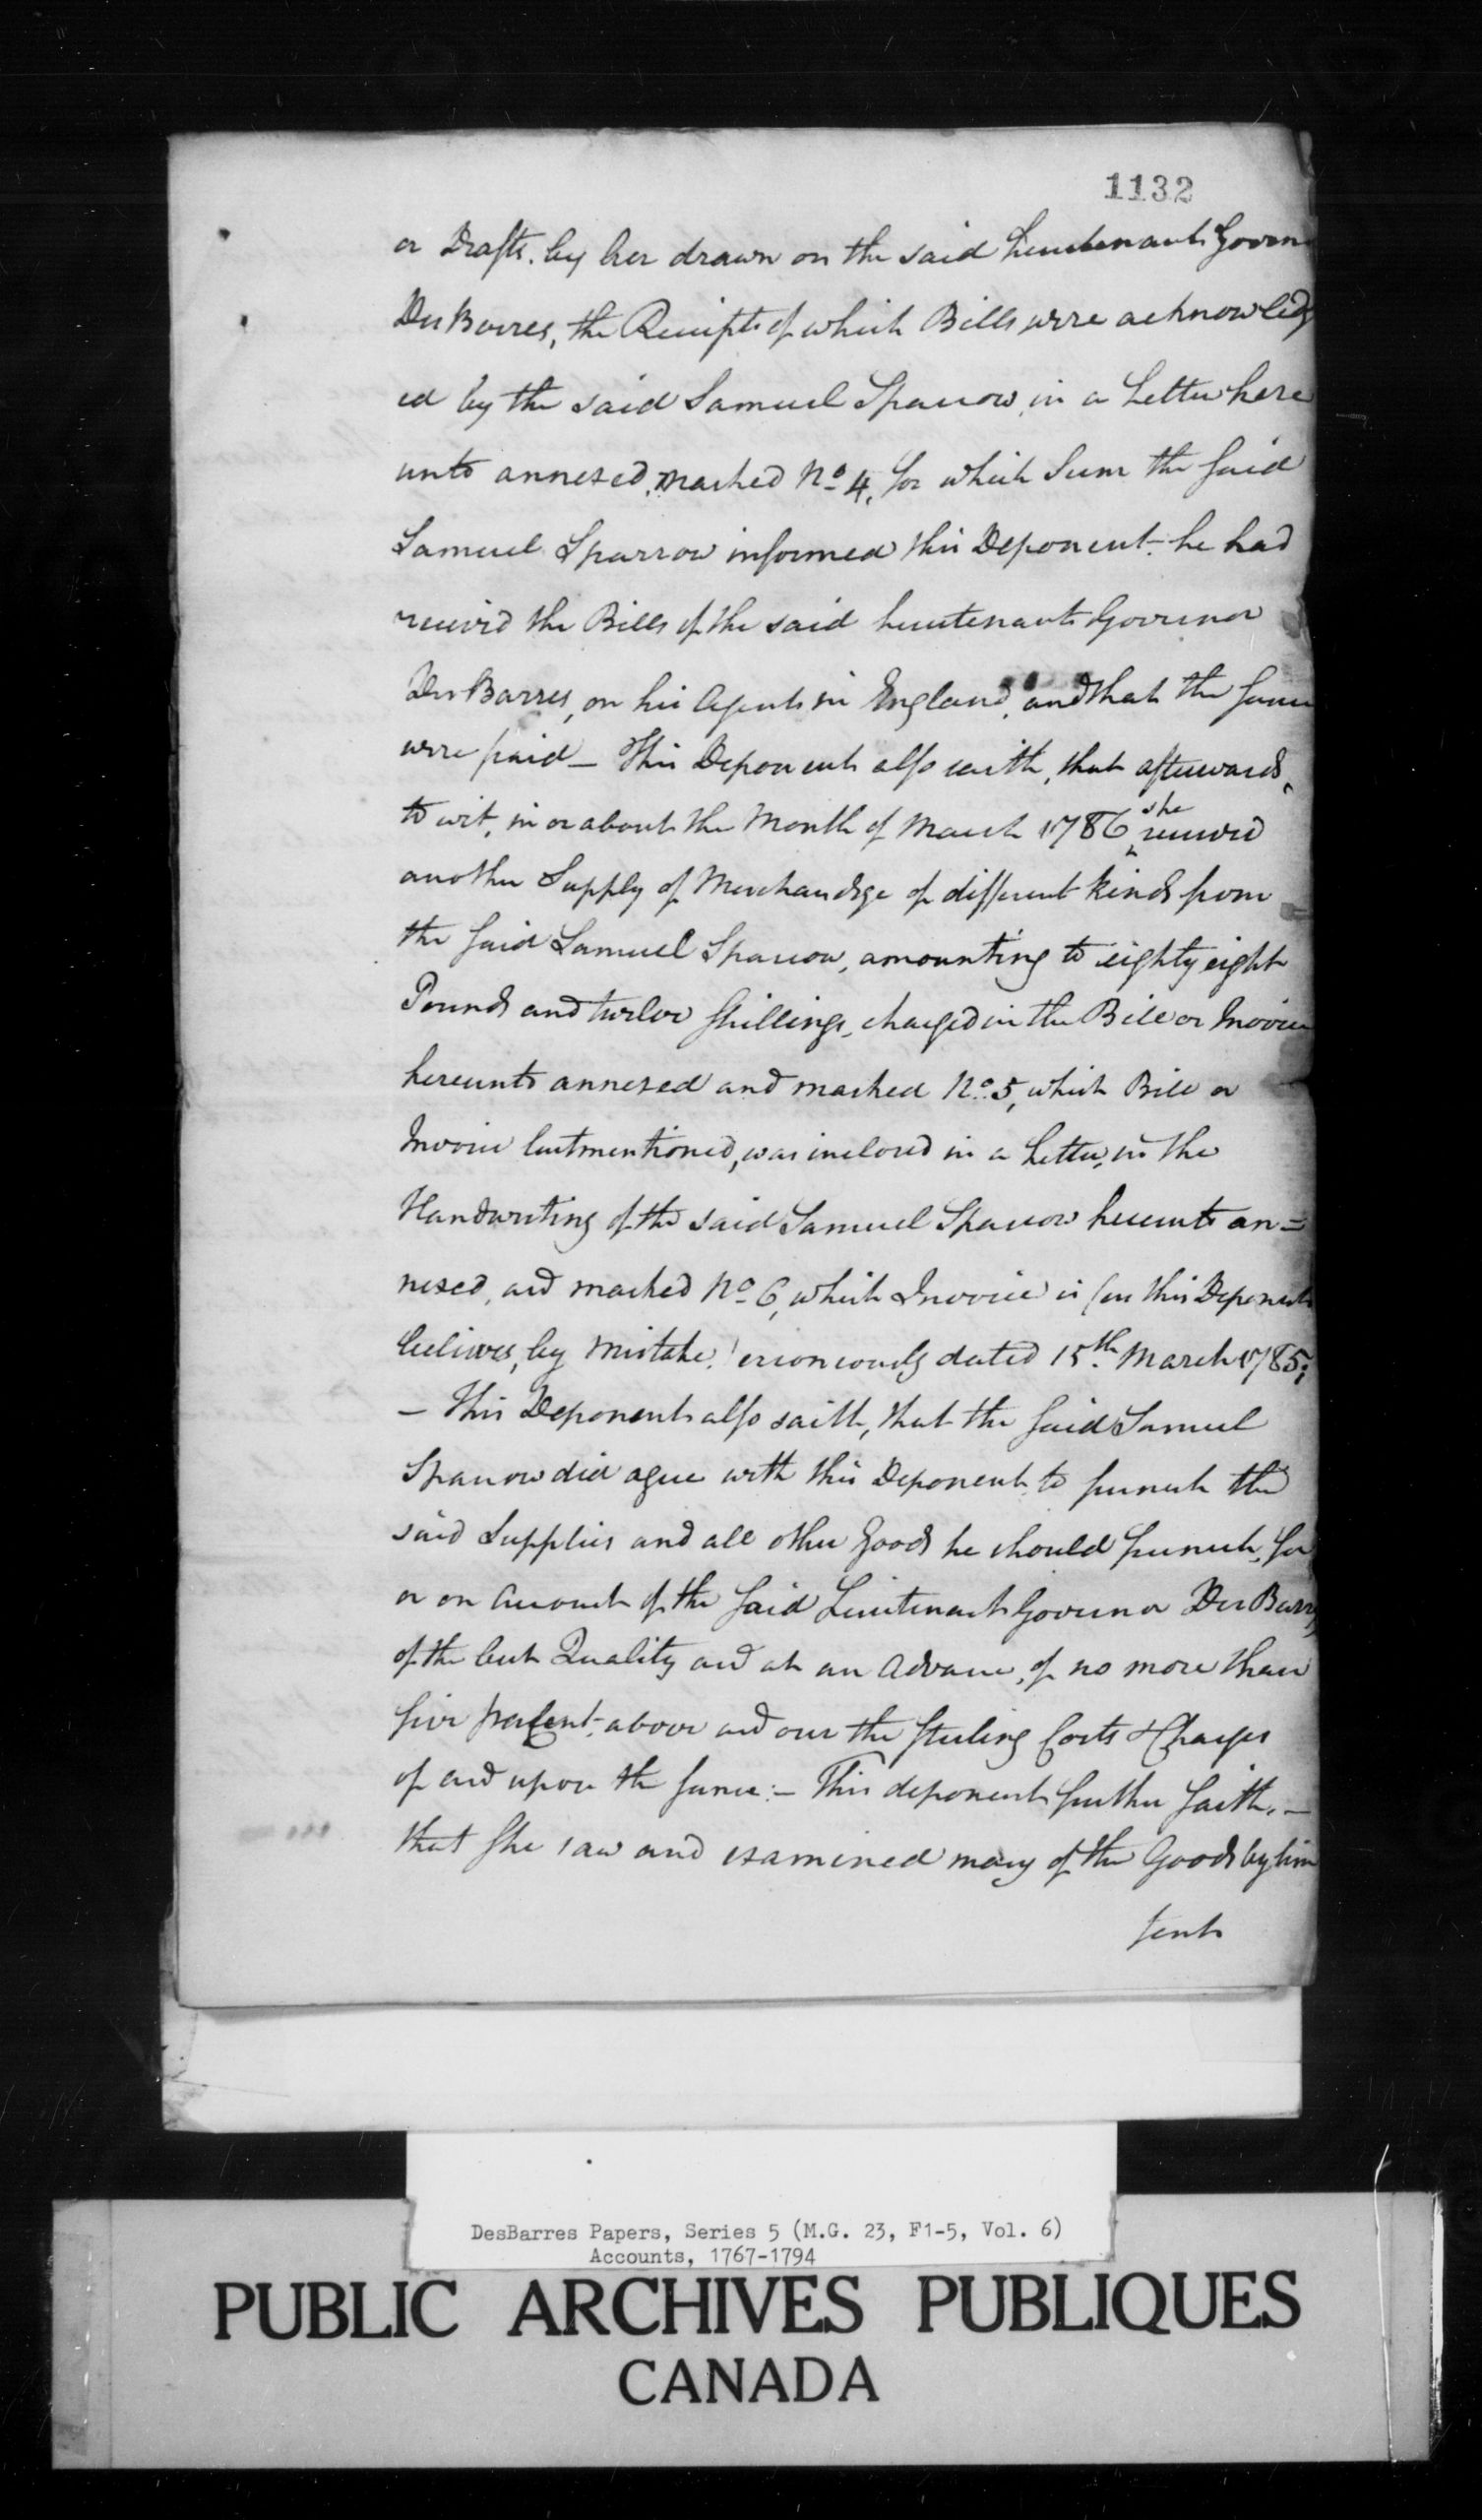 1132
or Drafts. by her drawn on the said Lieutenant Govern
Des Barres, the Receipts of which Bills were acknowledg
ed by the said Samuel Sparrow, in a Letter here
unto annexed, marked No. 4, for which Sum the said
Samuel Sparrow informed this Deponent he had
received the Bills of the said Lieutenant Governor
Des Barres, on his Agents in England, and that the same
were paid — This Deponent also saith, that afterwards,
to wit, in or about the Month of March 1786, she received
another Supply of Merchandize of different kinds from
the said Samuel Sparrow, amounting to eighty eight
Pounds and twelve Shillings, charged in the Bill or Invoice
hereunto annexed and marked No. 5, which Bill or
Invoice last mentioned, was inclosed in a Letter, in the
Handwriting of the said Samuel Sparrow hereunto an=
nexed, and marked No. 6, which Invoice is (as this Deponent
believes, by Mistake) erroneously dated 15th. March 1785;
— This Deponent also saith, that the said Samuel
Sparrow did agree with this Deponent to furnish the
said Supplies and all other Goods he should furnish, for
or on Account of the said Lieutenant Governor Des Barres,
of the best Quality and at an Advance, of no more than
five per Cent. above and over the Sterling Costs & Charges
of and upon the same: — This deponent further saith, —
that she saw and examined many of the Goods by him
sent
DesBarres Papers, Series 5 (M.G. 23, F1-5, Vol. 6)
Accounts, 1767-1794
PUBLIC ARCHIVES PUBLIQUES
CANADA